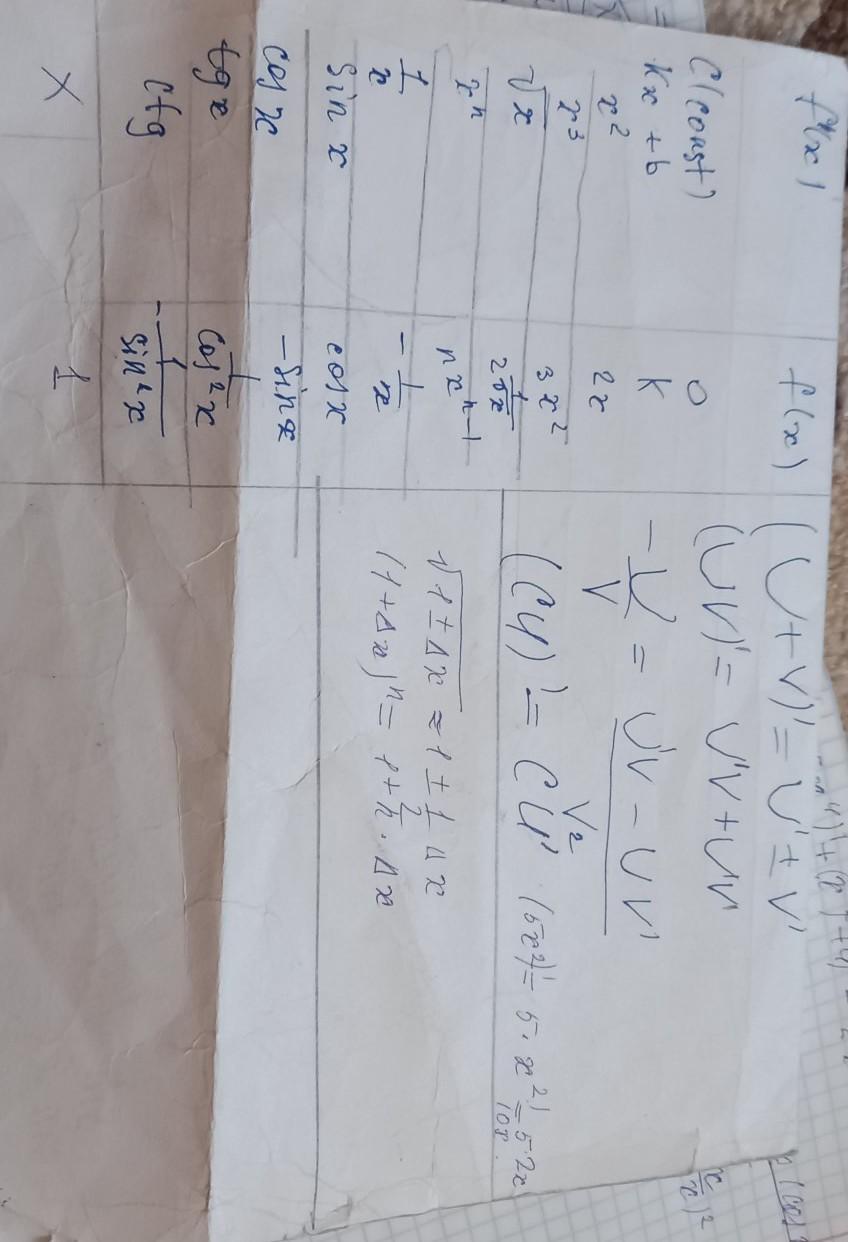 f'(x) f(x)
C(const) 0
kx + b k
x² 2x
x³ 3x²
√x 1/2√x
xⁿ nxⁿ⁻¹
1/x -1/x
Sin x cos x
Cos x -Sin x
tg x 1/Cos²x
Ctg -1/Sin²x
X 1
(U+V)' = U' ± V'
(UV)' = U'V + UV'
- U/V = U'V - UV' / V²
(CU)' = CU' (5x²)' = 5·x²' = 5·2x
10x.
√1 ± Δx ≈ 1 ± 1/2 Δx
(1+Δx)ⁿ = 1 + n · Δx